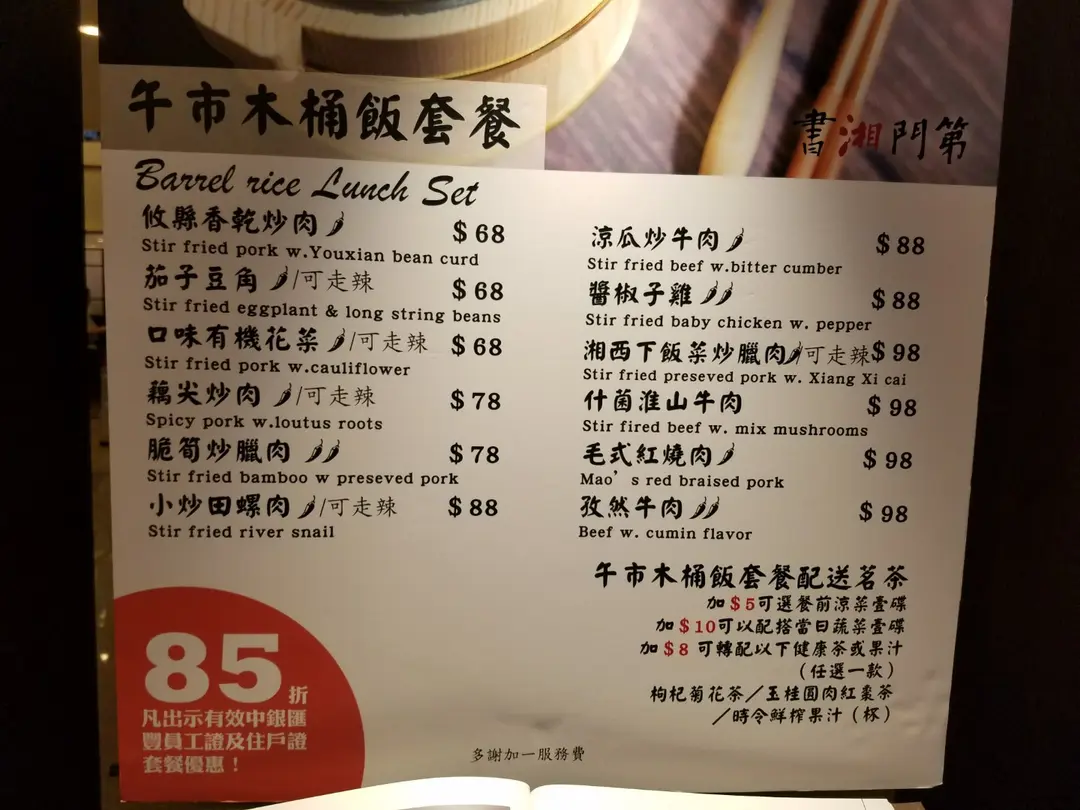 午市木桶飯套餐
書湘門第
Barrel rice Lunch Set
攸縣香乾炒肉 $68
Stir fried pork w.Youxian bean curd
茄子豆角 /可走辣 $68
Stir fried eggplant & long string beans
口味有機花菜 /可走辣 $68
Stir fried pork w.cauliflower
藕尖炒肉 /可走辣 $78
Spicy pork w.loutus roots
脆筍炒臘肉 $78
Stir fried bamboo w preseved pork
小炒田螺肉 /可走辣 $88
Stir fried river snail
涼瓜炒牛肉 $88
Stir fried beef w.bitter cumber
醬椒子雞 $88
Stir fried baby chicken w. pepper
湘西下飯菜炒臘肉/可走辣 $98
Stir fried preseved pork w. Xiang Xi cai
什菌淮山牛肉 $98
Stir fired beef w. mix mushrooms
毛式紅燒肉 $98
Mao's red braised pork
孜然牛肉 $98
Beef w. cumin flavor
午市木桶飯套餐配送茗茶
加$5可選餐前涼菜壹碟
加$10可以配搭當日蔬菜壹碟
加$8 可轉配以下健康茶或果汁
(任選一款)
枸杞菊花茶／玉桂圓肉紅棗茶
／時令鮮搾果汁(杯)
85折
凡出示有效中銀匯
豐員工證及住戶證
套餐優惠！
多謝加一服務費